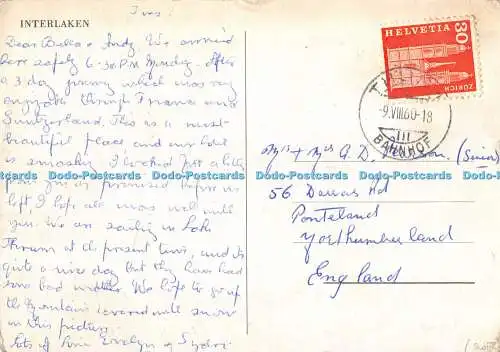 INTERLAKEN
Tues.
Dear Bella & Andy We arrived
here safely 6-30 P.M Monday. After
a 3 day journey which was very
enjoyable through France and
Switzerland. This is a most
beautiful place and our hotel
is smashing I looked
for you as promised before we
left I hope all was well with
you. We are sailing on Lake
Thun at the present time, and its
quite a nice day but they have had
some bad weather. We hope to go up
the Mountain covered with snow
in this picture.
lots of love Evelyn &
HELVETIA
30
ZÜRICH
-9.VIII.60-18
III
BAHNHOF
Mr & Mrs G. D. (Senior)
56 Darras Rd
Ponteland
Northumberland
England
Dodo-Postcards Dodo-Postcards Dodo-Postcards Dodo-Postcards